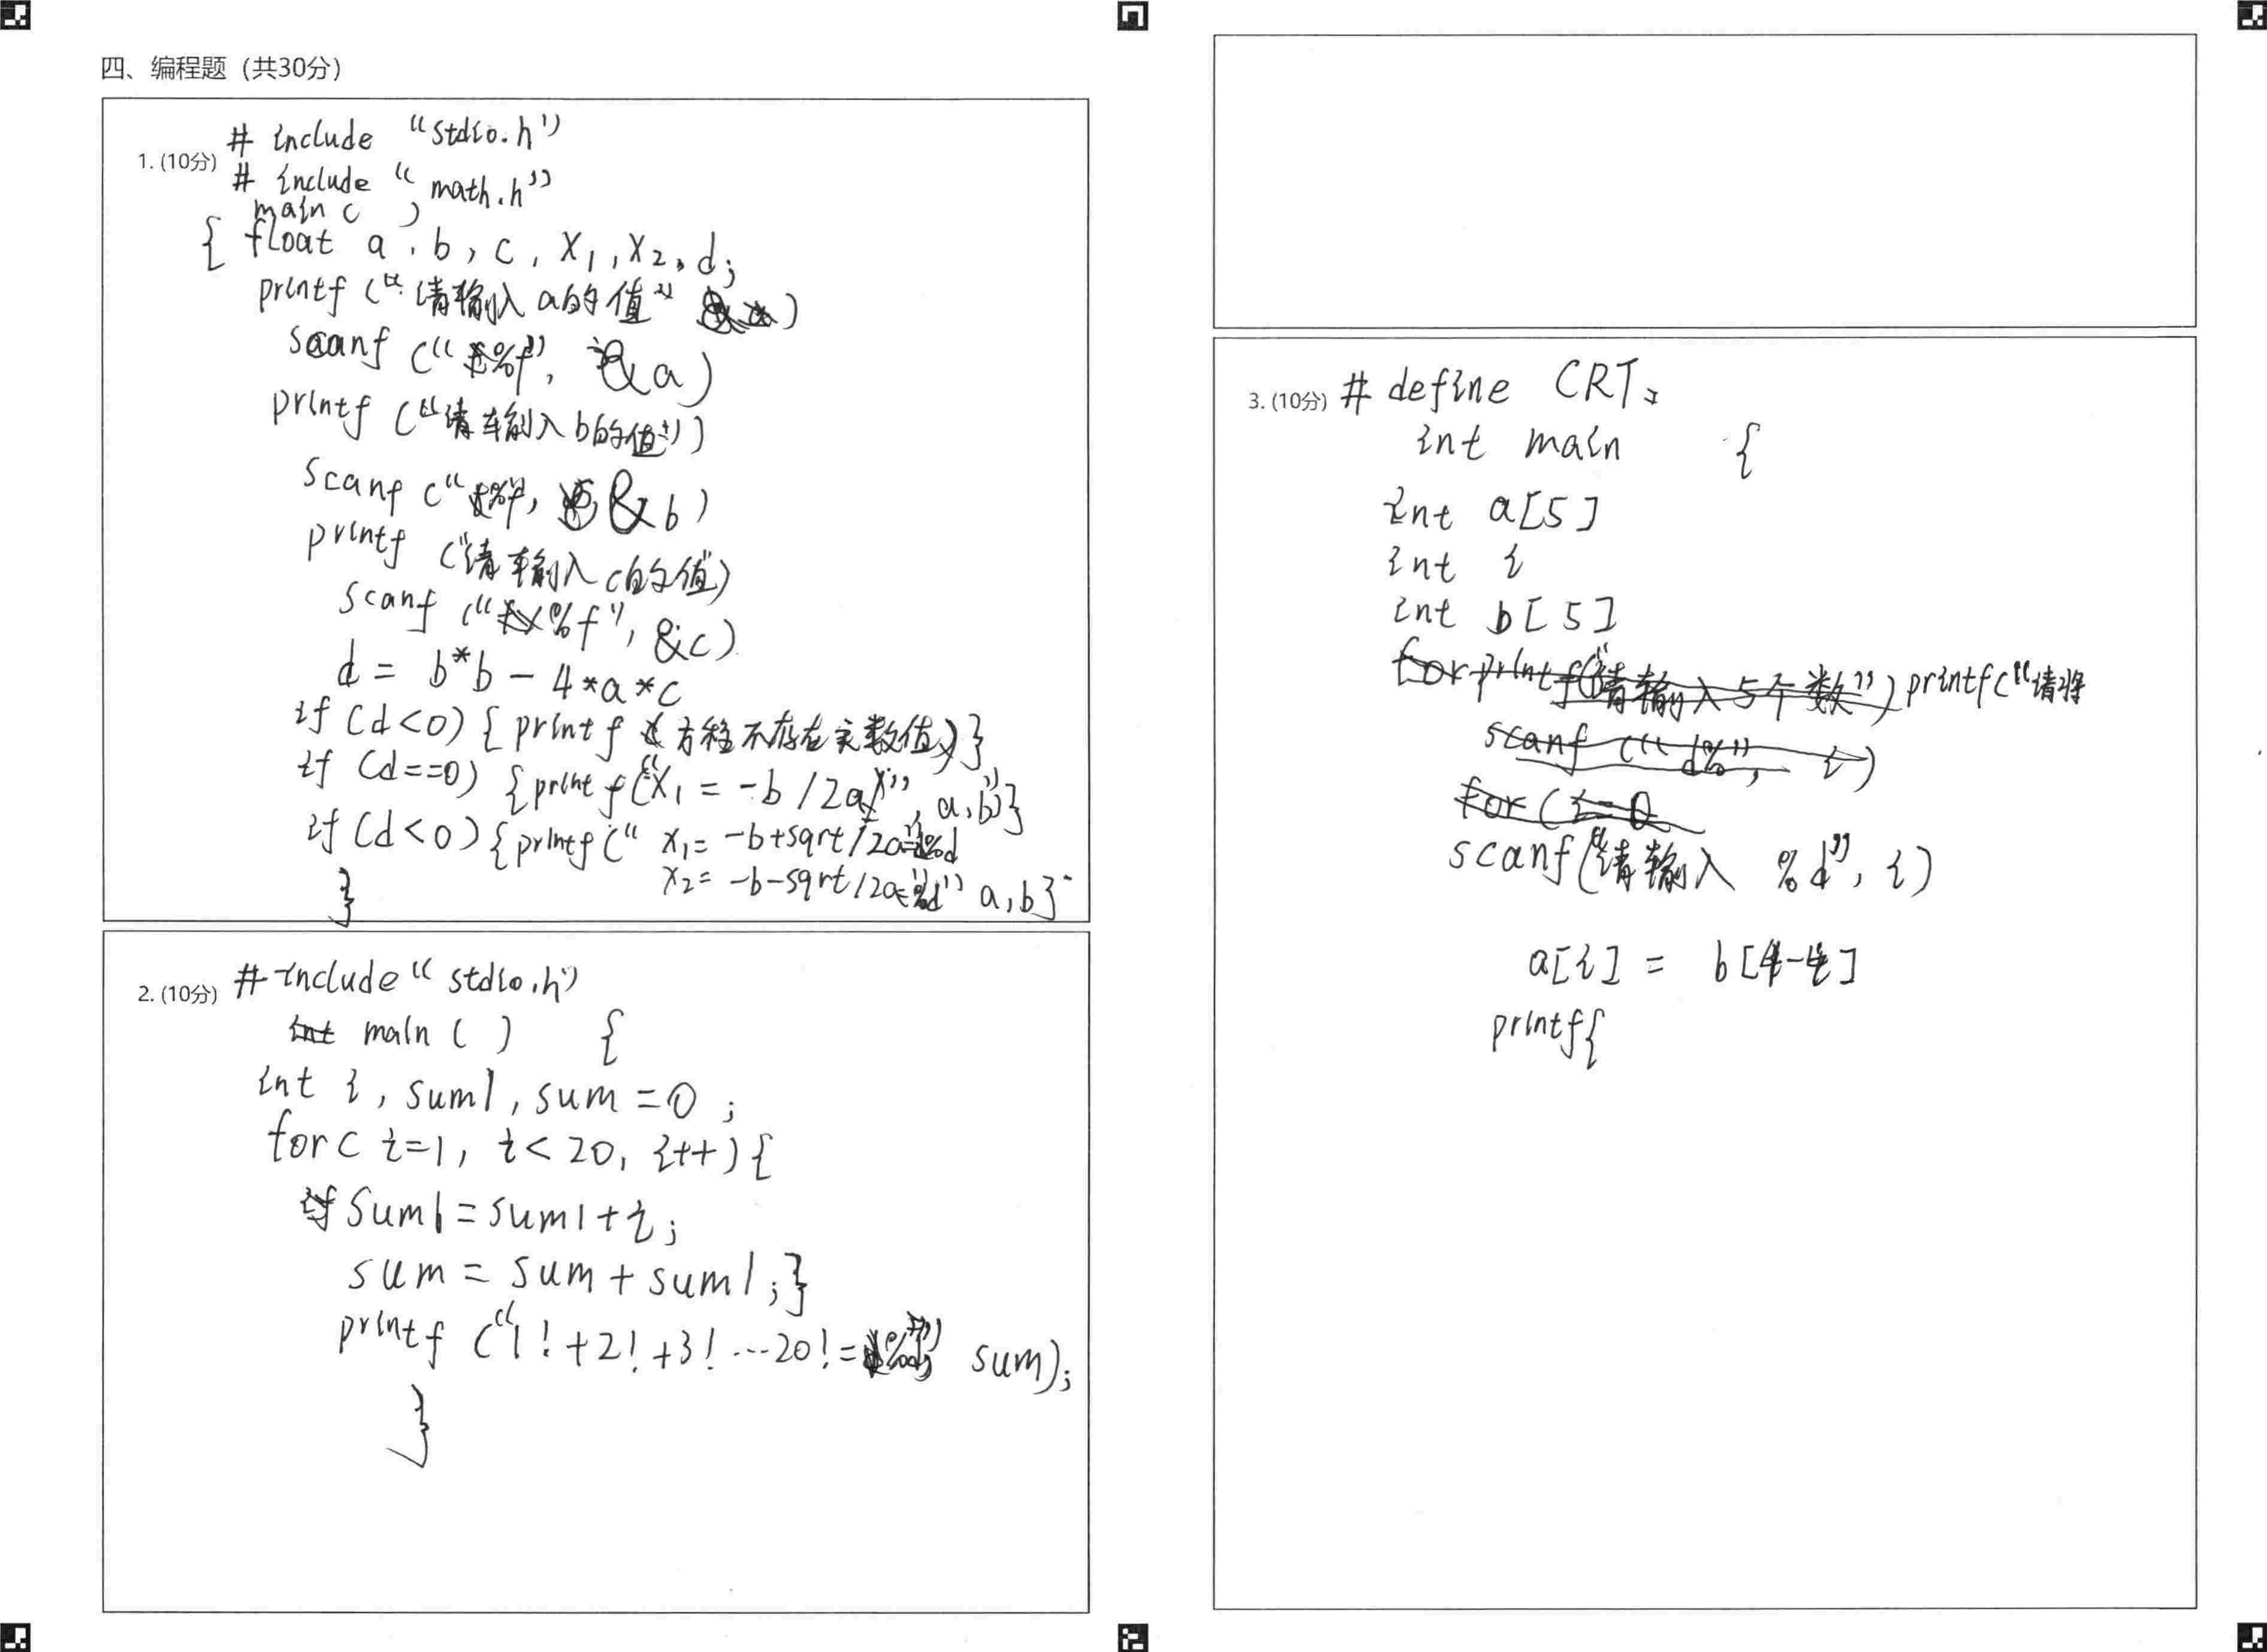 四、编程题（共30分）
# include "stdio.h"
1. (10分)
# include "math.h"
main ( )
{ float a, b, c, x1, x2, d;
printf ("请输入a的值" )
scanf ("%f", &a)
printf ("请输入b的值")
scanf ("%f", &b)
printf ("请输入c的值")
scanf ("%f", &c)
d = b*b - 4*a*c
if (d<0) { printf (方程不存在实数值)}
if (d==0) {printf("x1 = -b /2a", a,b)}
if (d<0) {printf(" x1= -b+sqrt/2a=%d
x2= -b-sqrt/2a=%d" a,b}
}
2. (10分) # include "stdio.h"
main ( ) {
int i, sum1, sum =0 ;
for( i=1, i< 20, i++) {
sum1=sum1+i;
sum = sum + sum1;}
printf ("1!+2!+3!...20!=%d" sum);
}
3. (10分) # define CRT
int main {
int a[5]
int i
int b[ 5]
for printf("请输入5个数") printf("请将
scanf ("d%", i)
for ( i=0
scanf("请输入 %d", i)
a[i] = b[4-i]
printf{